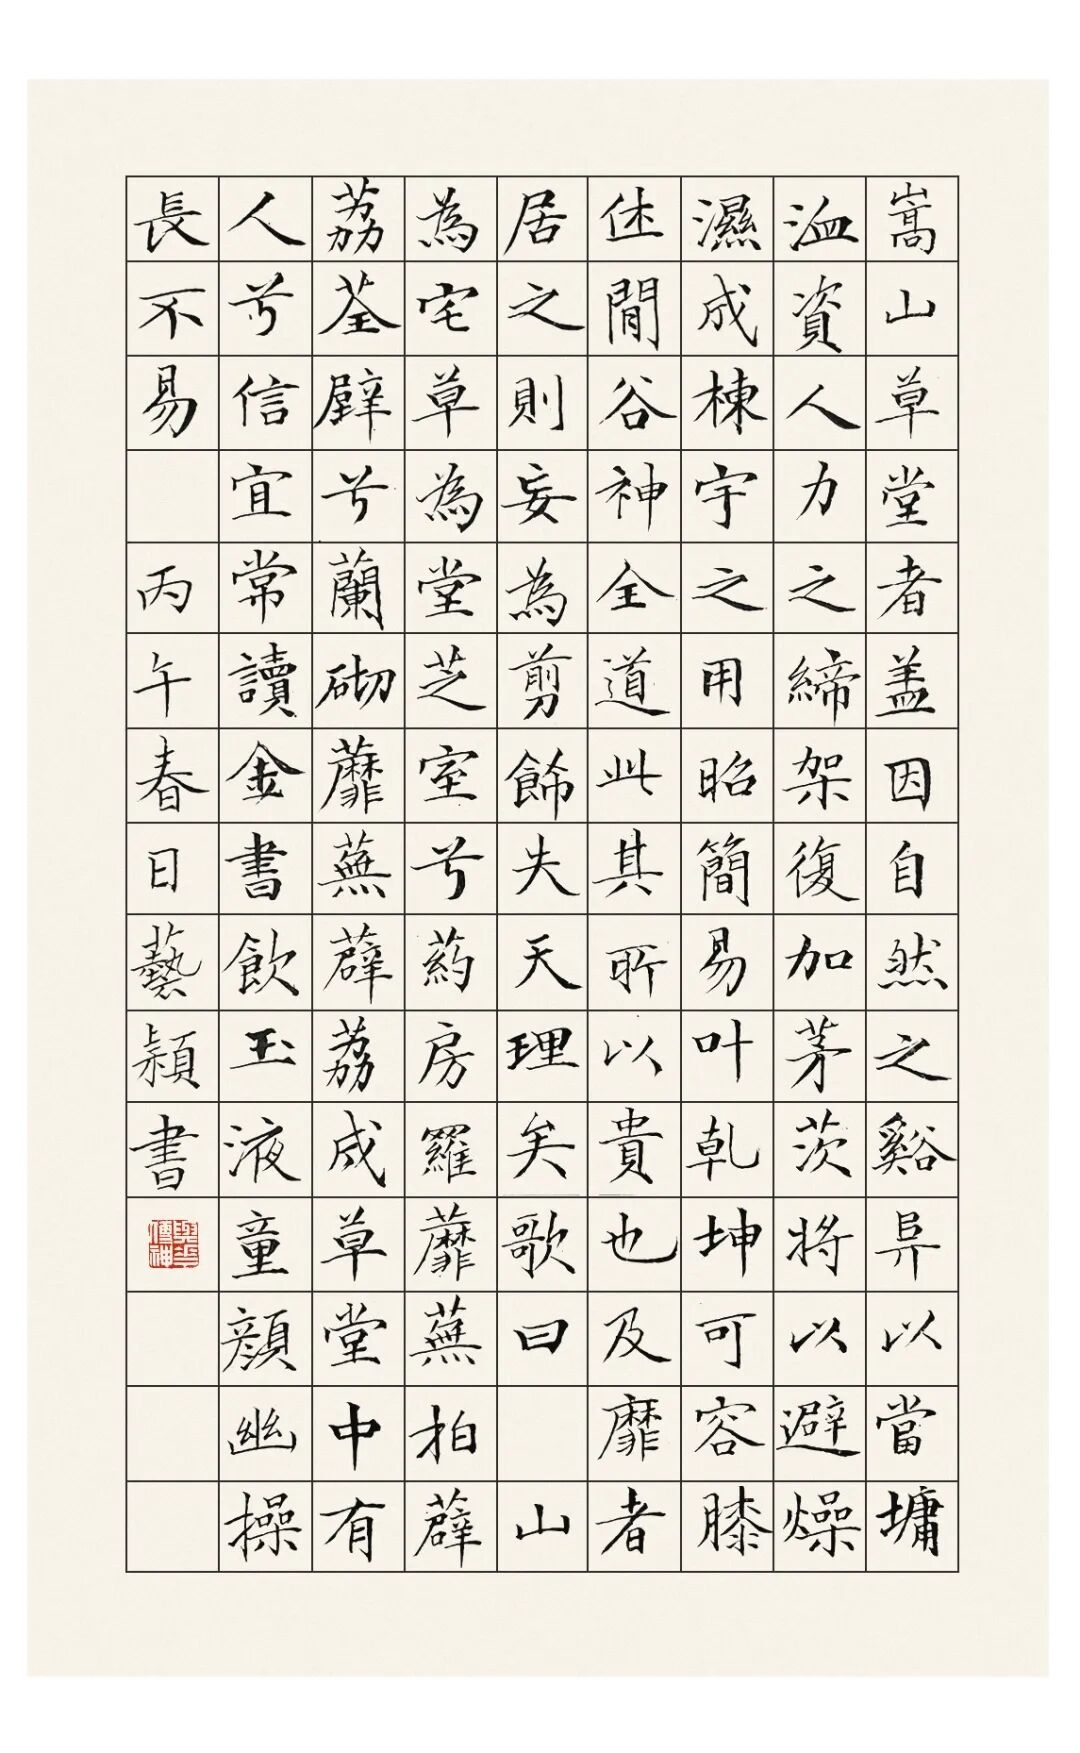 嵩山草堂者盖因自然之谿阜以當墉
洫資人力之締架復加茅茨將以避燥
濕成棟宇之用昭簡易叶乾坤可容膝
休閒谷神全道此其所以貴也及靡者
居之則妄為剪飾失天理矣歌曰 山
為宅草為堂芝室兮葯房羅蘼蕪拍薜
荔荃壁兮蘭砌蘼蕪薜荔成草堂中有
人兮信宜常讀金書飲玉液童顏幽操
長不易 丙午春日藝潁書